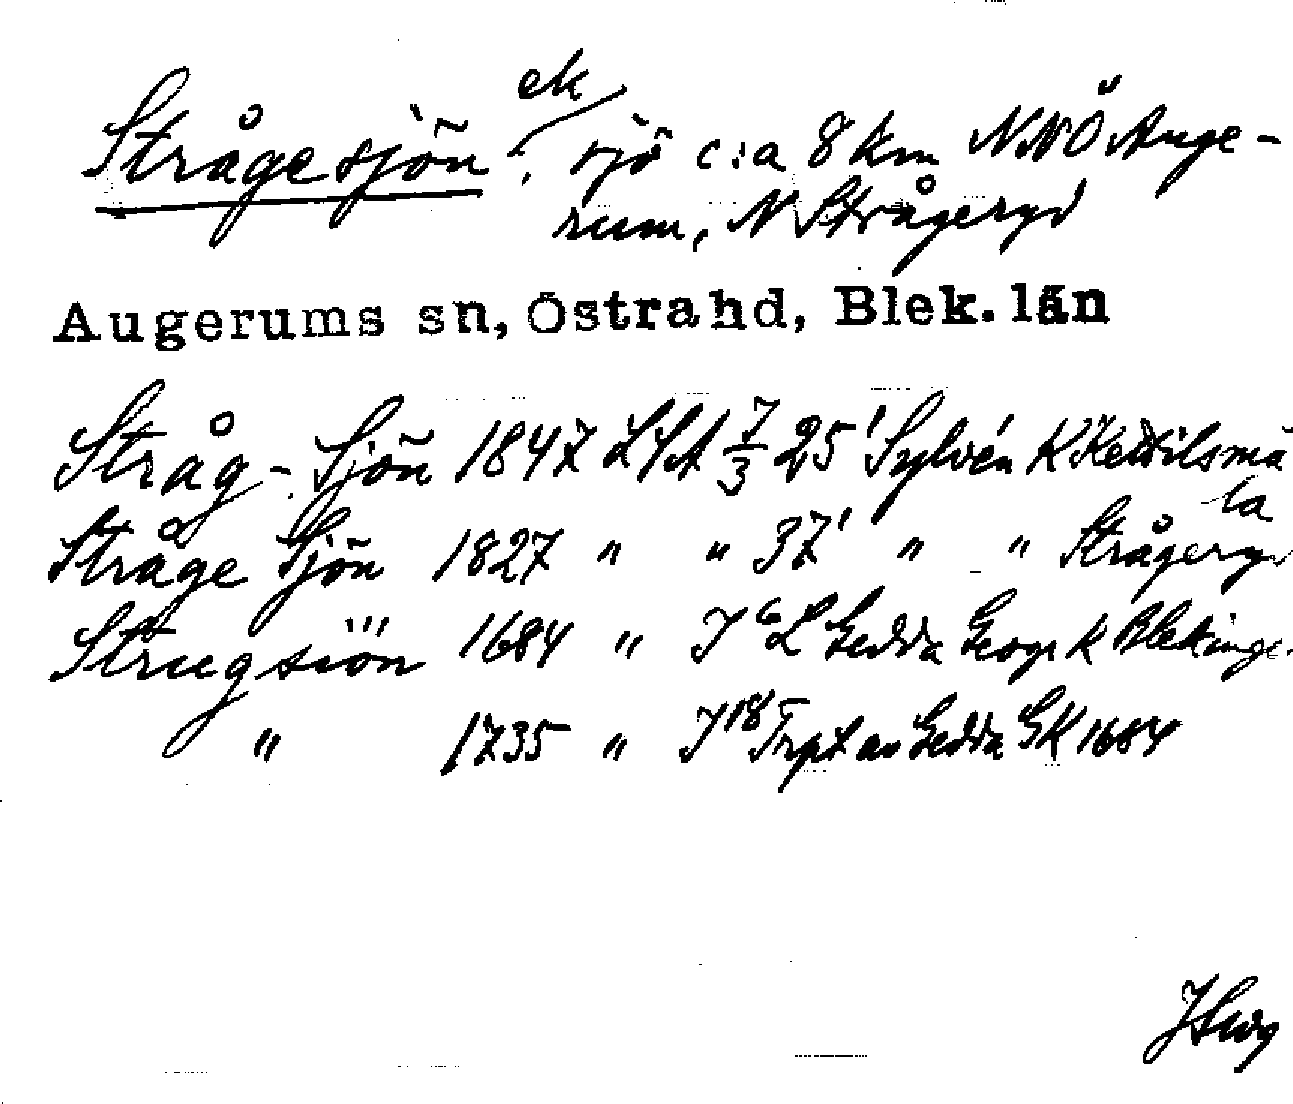 Strågesjön ek, sjö c:a 8 km NNÖ Auge-
rum, N Strågeryd
Augerums sn, Östra hd, Blek. län
Stråg-Sjön 1847 LSA 7/3 25' Sylvén K Kettilsmå
la
Stråge Sjön 1827 " " 37' " " Strågeryd
Strugsiön 1684 " J6 L Gedda Geogr K Blekinge
" 1735 " J18 Trpt av Gedda GK 1684